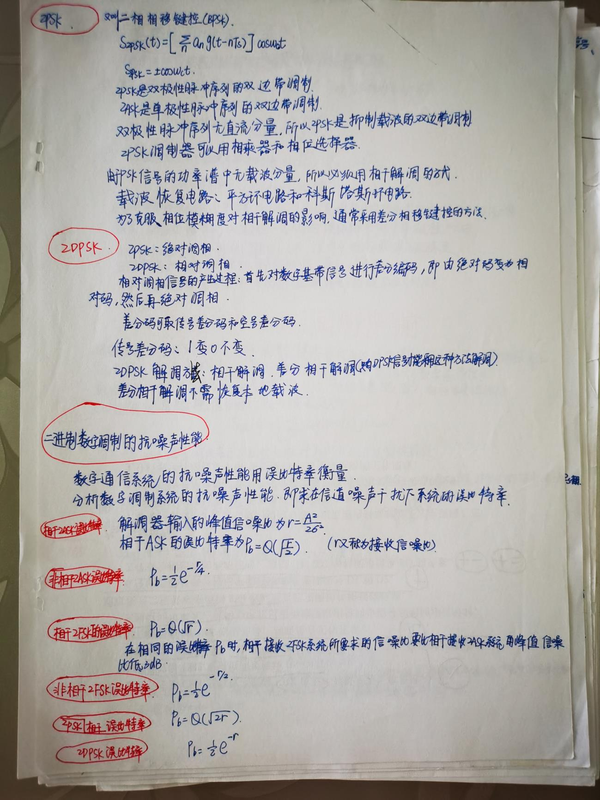 2PSK
二相相移键控(BPSK).
S2PSK(t)=[Σn an g(t-nTs)]cosωct
S2PSK=±cosωct.
2PSK是双极性脉冲序列的双边带调制
2ASK是单极性脉冲序列的双边带调制.
双极性脉冲序列无直流分量,所以2PSK是抑制载波的双边带调制
2PSK调制器可以用相乘器和相位选择器.
由于PSK信号的功率谱中无载波分量,所以必须用相干解调的方式.
载波恢复电路:平方环电路和科斯塔斯环电路.
为了克服相位模糊度对相干解调的影响,通常采用差分相移键控的方法.
2DPSK. 2PSK:绝对调相
2DPSK:相对调相
相对调相信号的产生过程:首先对数字基带信号进行差分编码,即由绝对码变为相
对码,然后再绝对调相.
差分码可取传号差分码和空号差分码.
传号差分码:1变0不变.
2DPSK解调方式:相干解调.差分相干解调(只有DPSK信号才能用这种方法解调).
差分相干解调不需恢复本地载波.
二进制数字调制的抗噪声性能
数字通信系统的抗噪声性能用误比特率衡量.
分析数字调制系统的抗噪声性能.即求在信道噪声干扰下系统的误比特率.
相干2ASK误比特率 解调器输入的峰值信噪比为r=A²/2σ²
相干ASK的误比特率为Pb=Q(√r/2) (r又称为接收信噪比)
非相干2ASK误比特率 Pb=½e^-r/4.
相干2FSK的误比特率 Pb=Q(√r).
在相同的误比特率Pb时,相干接收2FSK系统所要求的信噪比要比相干接收2ASK系统用峰值信噪
比低3dB.
非相干2FSK误比特率 Pb=½e^-r/2
2PSK相干误比特率 Pb=Q(√2r).
2DPSK误比特率 Pb=½e^-r